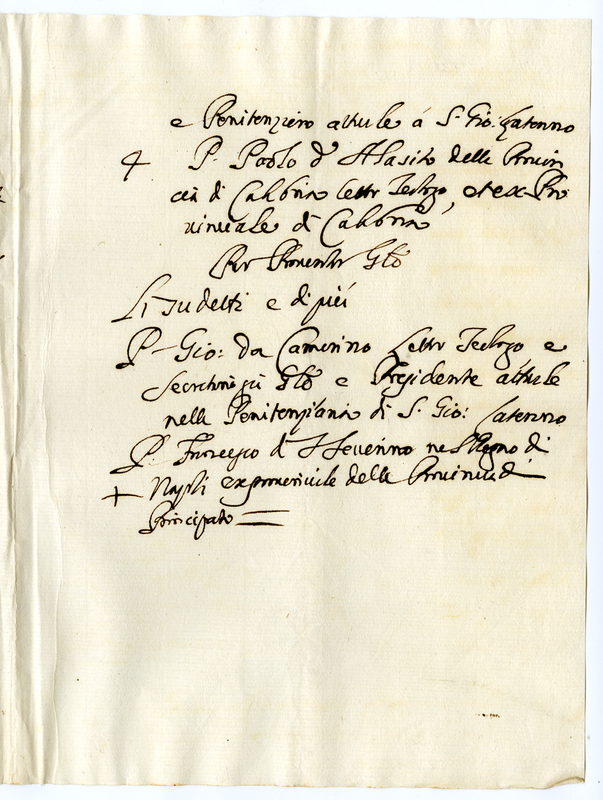 e Penitenziero attuale á S. Gio: Laterano
P. Paolo d' della Provin
cia di Calabria Lettr Teologo, et ex Pro
uinciale di Calabria
Per Procuratr Gle
Li sudetti e di piú
P. Gio: da Camerino Lettr Teologo e
Secretario Gle e Presidente attuale
nella Penitenziaria di S. Gio: Laterano
P. Francesco d S Seuerino nel Regno di
+ Napoli exprouinciale della Prouincia di
Principato